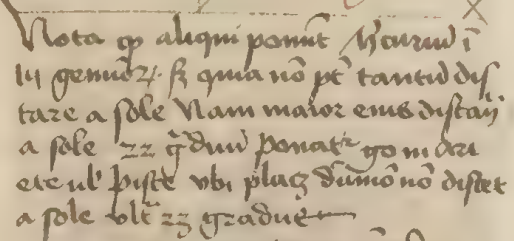 Nota qp aliqui ponūt h̄curiū ī
iij genuōꝝ. sꝫ quia nō pt̄ tantū dis
tare a sole Nam maior eius distan̄
a sole 22 g̃duū ponatr̃ go in ari
ete ul' piste ubi plaꝫ dūmō nō distet
a sole ult̃ 23 gradus